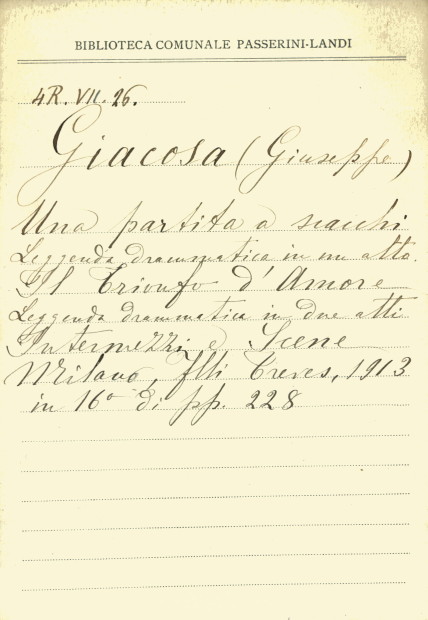 BIBLIOTECA COMUNALE PASSERINI-LANDI
4R. VII. 26.
Giacosa (Giuseppe)
Una partita a scacchi
Leggenda drammatica in un atto.
Il Trionfo d'Amore
Leggenda drammatica in due atti
Intermezzi e Scene
Milano, Flli Treves, 1913
in 16º di pp. 228